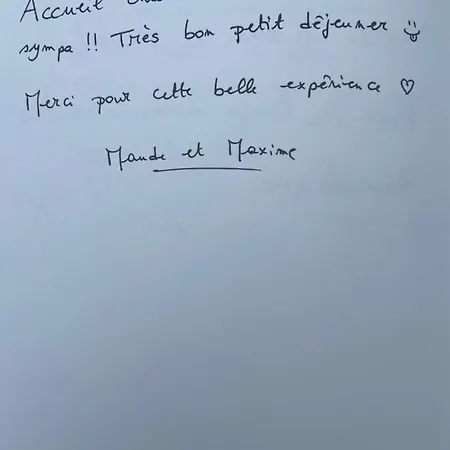 Accueil
sympa !! Très bon petit déjeuner
Merci pour cette belle expérience ♡
Maude et Maxime